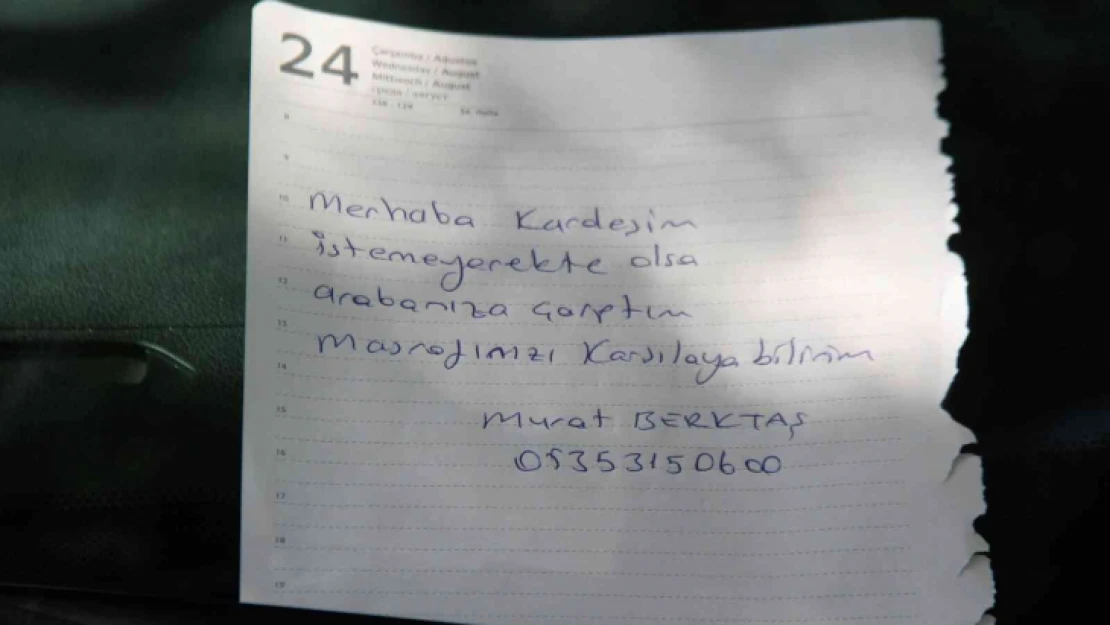 24
Çarşamba / Ağustos
Wednesday / August
Mittwoch / August
8
9
10 Merhaba Kardeşim
11 istemeyerekte olsa
12 arabanıza çarptım
13 masrafınızı Karşılaya bilirim
14
15 Murat BERKTAŞ
16 05353150600
17
18
19